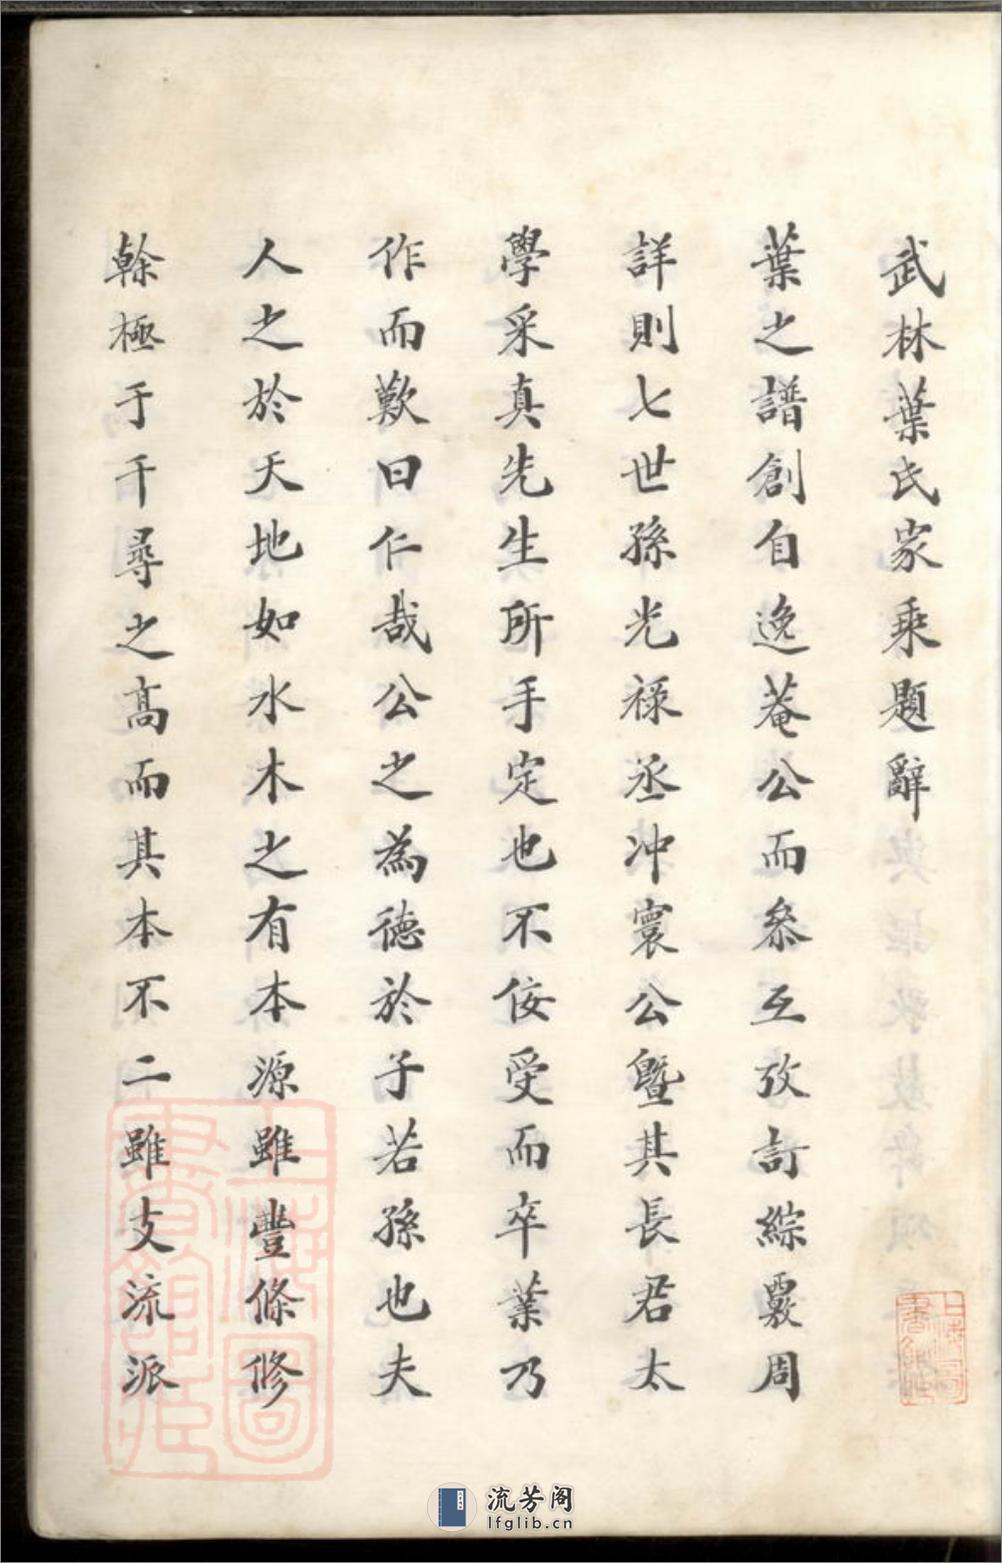 武林葉氏家乘題辭
葉之譜創自逸菴公而叅互攷訂綜覈周
詳則七世孫光祿丞冲寰公曁其長君太
學采真先生所手定也不佞受而卒業乃
作而歎曰仁哉公之為德於子若孫也夫
人之於天地如水木之有本源雖豐條修
榦極于千尋之高而其本不二雖支流派
上海圖書館藏
上海圖書館藏
流芳阁
lfglib.cn